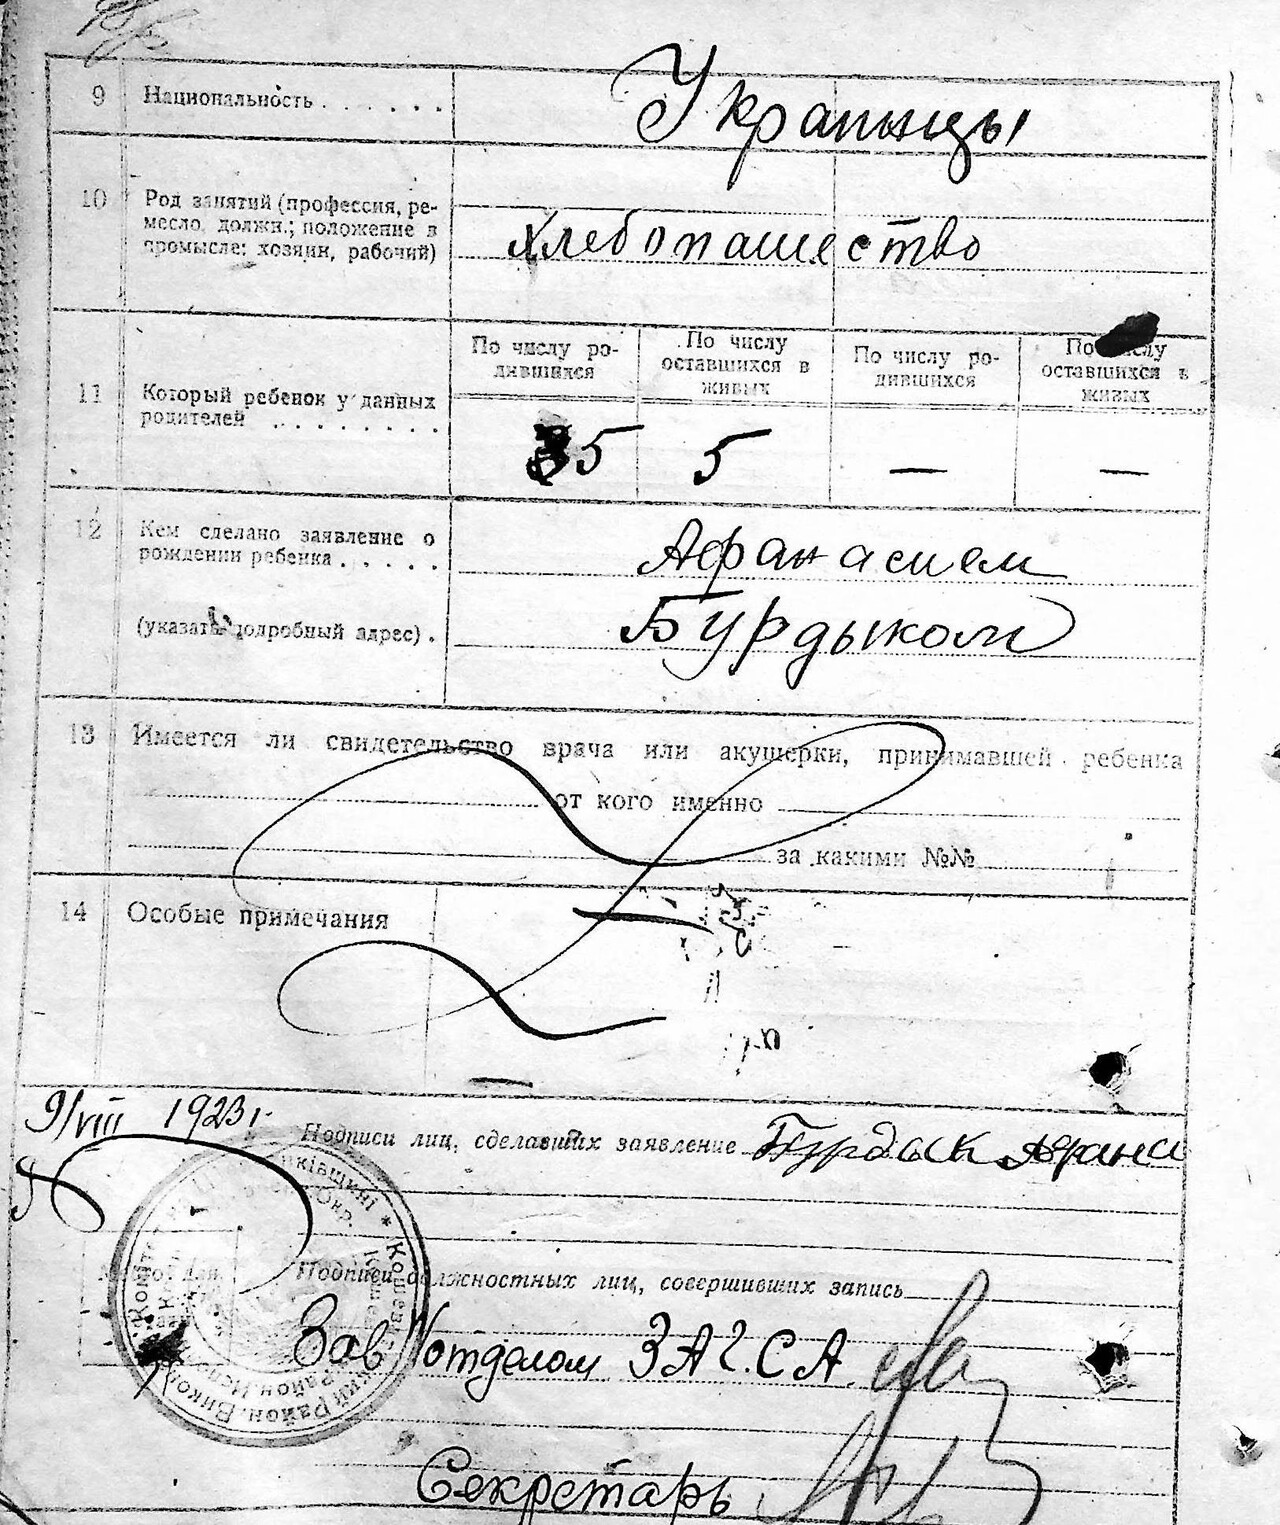 9 Национальность . . . . . . Украинцы
10 Род занятий (профессия, ре-
месло, должн.; положение в
промысле: хозяин, рабочий)
Хлебопашество
По числу ро-
дившихся
По числу
оставшихся в
живых
По числу ро-
дившихся
По числу
оставшихся в
живых
11 Который ребенок у данных
родителей . . . . . . . .
5 5 — —
12 Кем сделано заявление о
рождении ребенка . . . . .
Афанасием
(указать подробный адрес) .
Бурдыком
13 Имеется ли свидетельство врача или акушерки, принимавшей ребенка
от кого именно
за какими №№
14 Особые примечания
9/VIII 1923 г.
Подписи лиц, сделавших заявление Бурдык Афанаси
Подписи должностных лиц, совершивших запись
Зав п/отделом ЗАГ.СА.
Секретарь